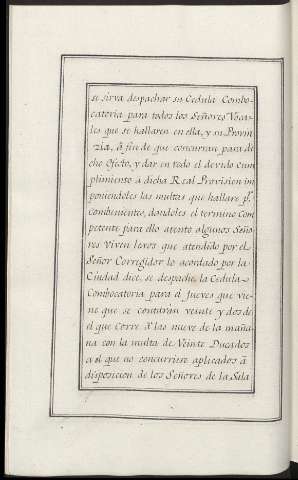 se sirva despachar su Cedula Combo-
catoria para todos los Señores Voca-
les que se hallaren en ella, y su Provin
zia, â fin de que concurran para di
cho Efecto, y dar en todo el devido cum
plimiento â dicha Real Provision im
poniendoles las multas que hallare pr.
Combenientes, dandoles el termino Com
petente para ello atento algunos Seño
res Viven lexos que atendido por el
Señor Corregidor lo acordado por la
Ciudad dice, se despache la Cedula
Combocatoria para el Jueves que vie-
ne que se contaran veinte y dos de
el que Corre â las nueve de la maña
na con la multa de Veinte Ducados
a el que no concurriese aplicados â
disposicion de los Señores de la Sala